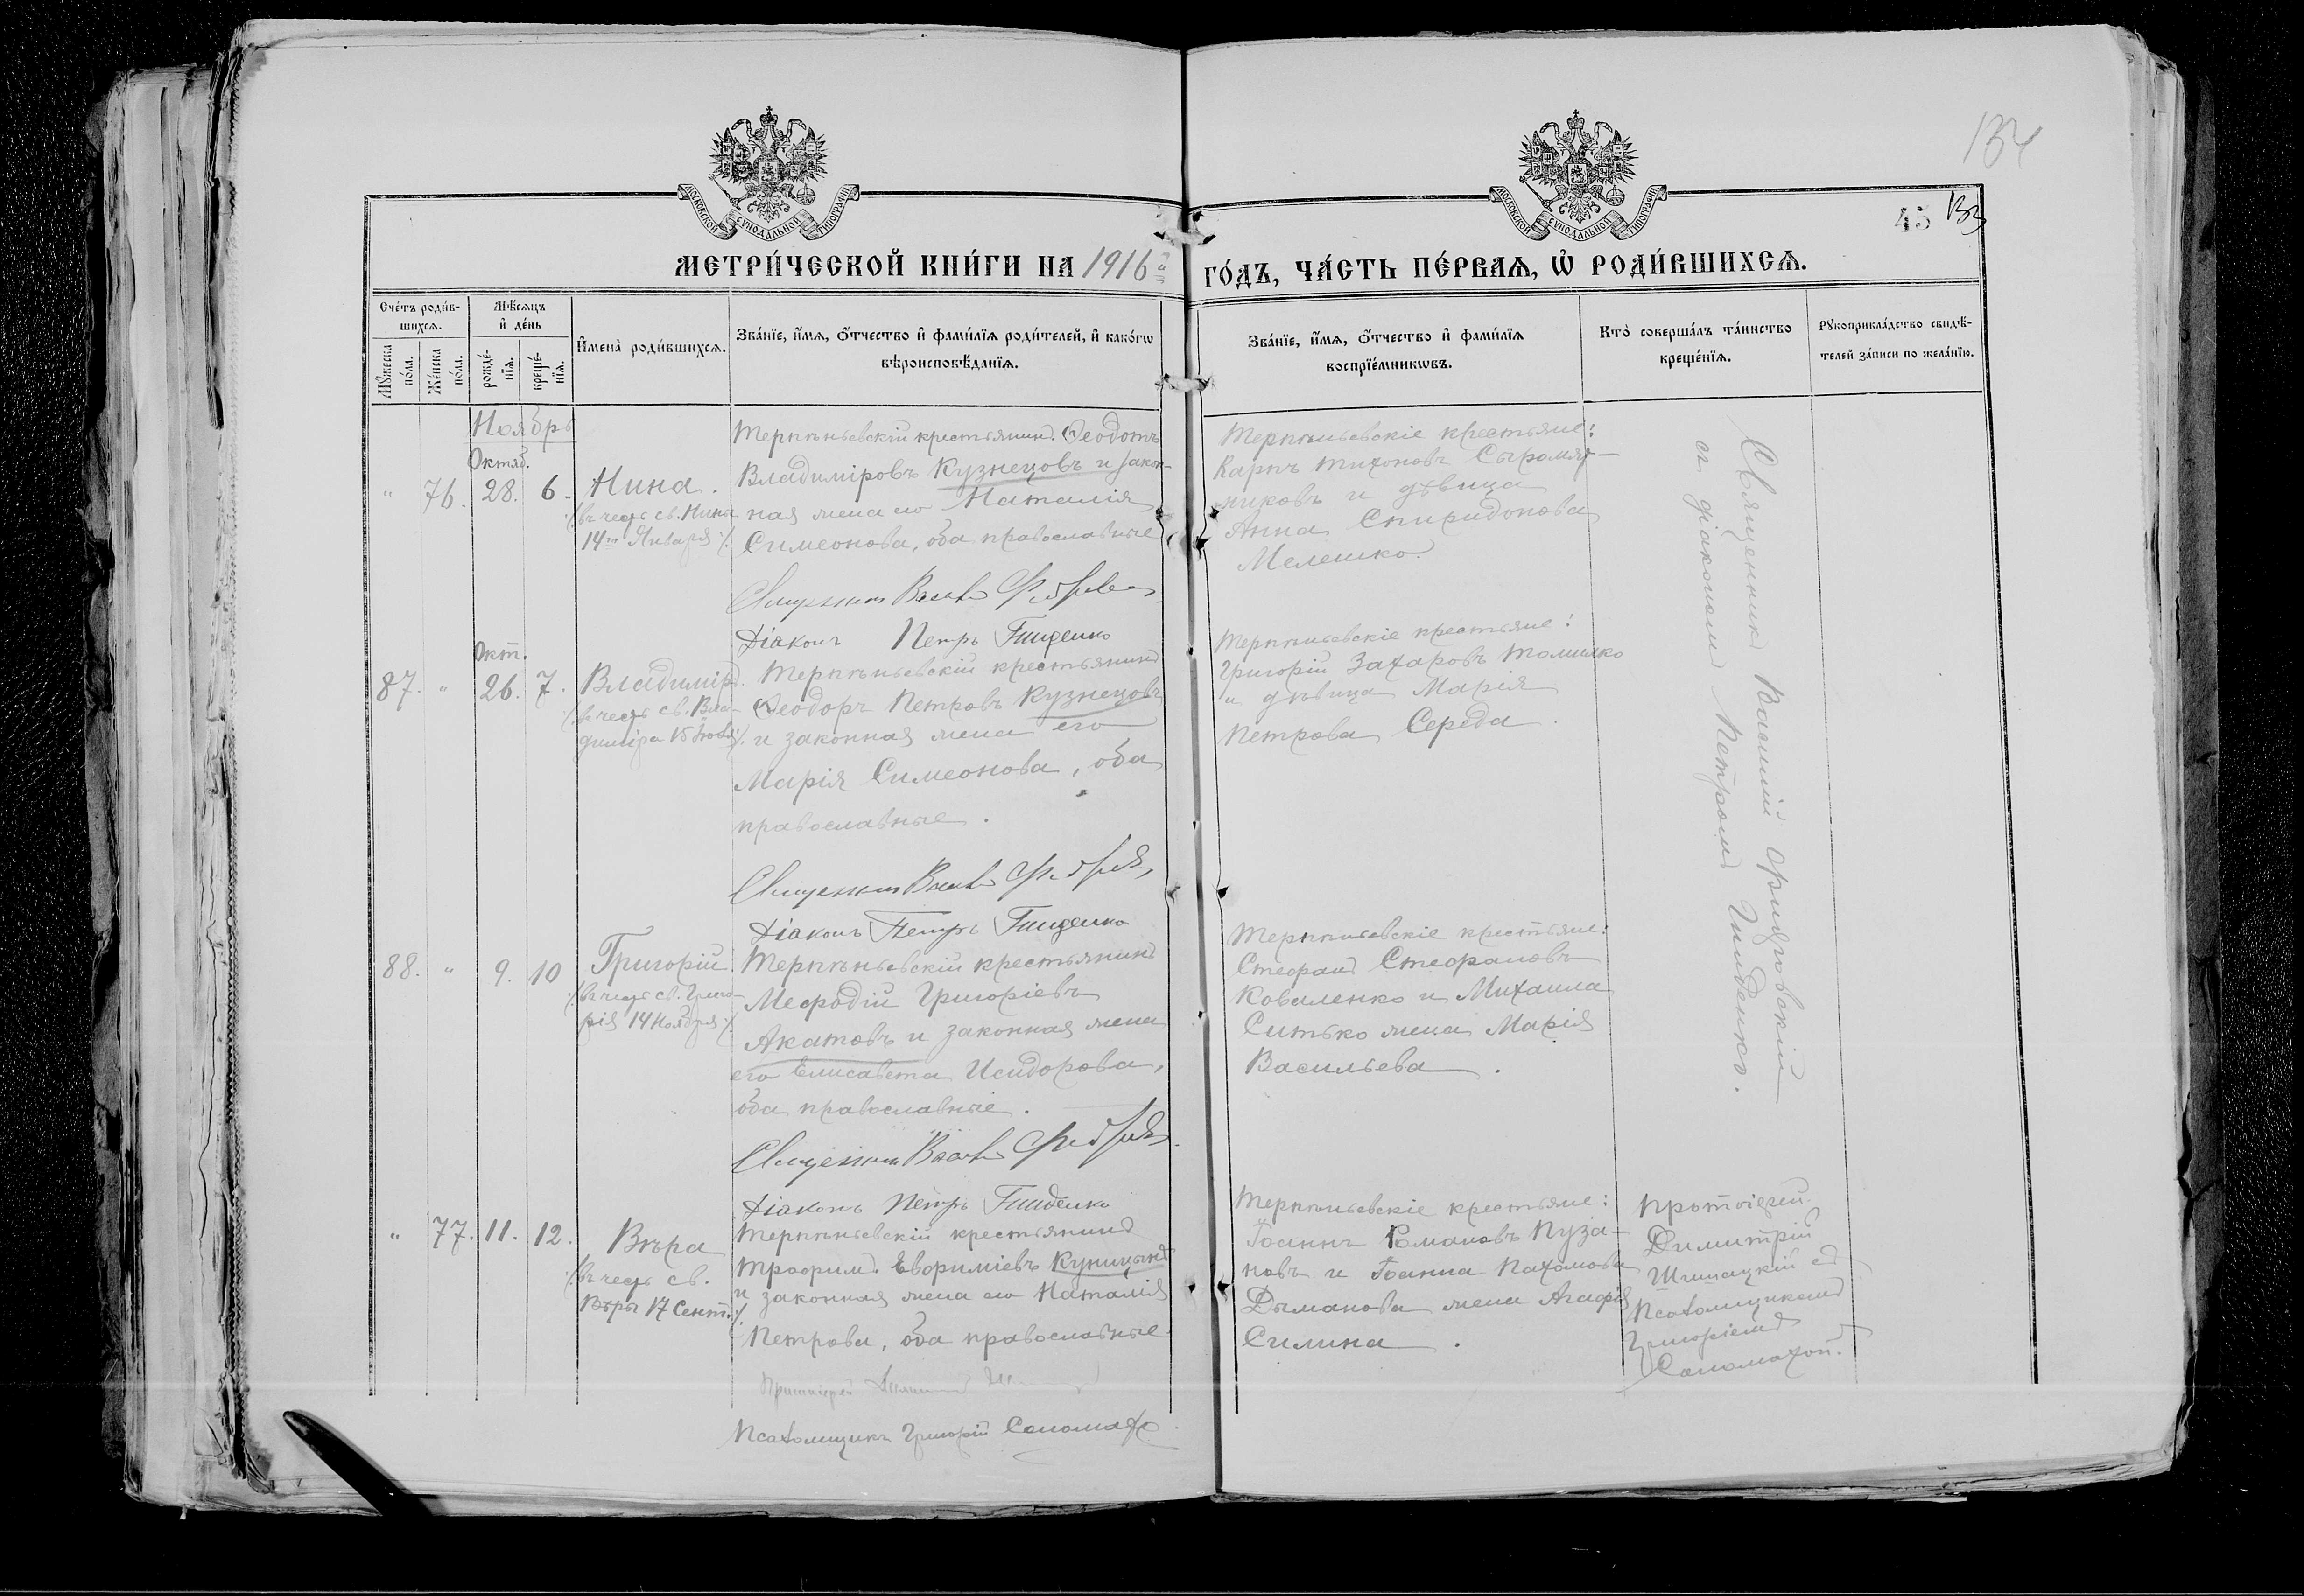 134
45 133
МОСКОВСКОЙ СѴНОДАЛЬНОЙ ТИПОГРАФІИ
МОСКОВСКОЙ СѴНОДАЛЬНОЙ ТИПОГРАФІИ
МЕТРИ́ЧЕСКОЙ КНИ́ГИ НА 1916й ГО́ДЪ, ЧА́СТЬ ПЕ́РВАѦ, Ѽ РОДИ́ВШИХСѦ.
Сче́тъ роди́в-
шихсѧ.
Мѣ́сѧцъ
и҆ де́нь
Мꙋ́жеска по́ла.
Же́нска по́ла.
рожде́-
нїѧ.
креще́-
нїѧ.
И҆мена̀ роди́вшихсѧ.
Зва́нїе, и҆́мѧ, ѻ҆́тчество и҆ фами́лїѧ роди́телей, и҆ како́гѡ
вѣроисповѣ́данїѧ.
Зва́нїе, и҆́мѧ, ѻ҆́тчество и҆ фами́лїѧ
воспрїе́мникѡвъ.
Кто̀ соверша́лъ та́инство
креще́нїѧ.
Рꙋкоприкла́дство свидѣ́-
телей за́писи по жела́нїю.
Ноябрь
Октяб.
" 76. 28. 6.
Нина.
/:въ честь св. Нины
14го Января:/.
Терпѣньевскій крестьянинъ Ѳеодотъ
Владиміровъ Кузнецовъ и закон-
ная жена его Наталія
Симеонова, оба православные
Священникъ
Діаконъ Петръ Гниденко
Терпѣньевскіе крестьяне:
Карпъ Тихоновъ Сыромят-
никовъ и дѣвица
Анна Спиридонова
Мелешко.
Священникъ Василій
съ діакономъ Петромъ Гниденко.
Окт.
87. " 26. 7.
Владиміръ.
/:въ честь св. Вла-
диміра 15 Іюля:/.
Терпѣньевскій крестьянинъ
Ѳеодоръ Петровъ Кузнецовъ
и законная жена его
Марія Симеонова, оба
православные.
Священникъ
Діаконъ Петръ Гниденко
Терпѣньевскіе крестьяне:
Григорій Захаровъ Томилко
и дѣвица Марія
Петрова Середа.
88. " 9. 10
Григорій.
/:въ честь св. Григо-
рія 14 Ноября:/.
Терпѣньевскій крестьянинъ
Меѳодій Григоріевъ
Акатовъ и законная жена
его Елисавета Исидорова,
оба православные.
Священникъ
Діаконъ Петръ Гниденко
Терпѣньевскіе крестьяне:
Стефанъ Стефановъ
Коваленко и Михаила
Ситько жена Марія
Васильева.
" 77. 11. 12.
Вѣра
/:въ честь св.
Вѣры 17 Сент.:/.
Терпѣньевскій крестьянинъ
Трофимъ Евфиміевъ Куницынъ
и законная жена его Наталія
Петрова, оба православные.
Протоіерей
Псаломщикъ Григорій Соломаха.
Терпѣньевскіе крестьяне:
Іоаннъ Романовъ Пуза-
новъ и Іоанна Пахомова
Дыманова жена Агафія
Силина.
Протоіерей
Димитрій
съ
Псаломщикомъ
Григоріемъ
Соломахой.